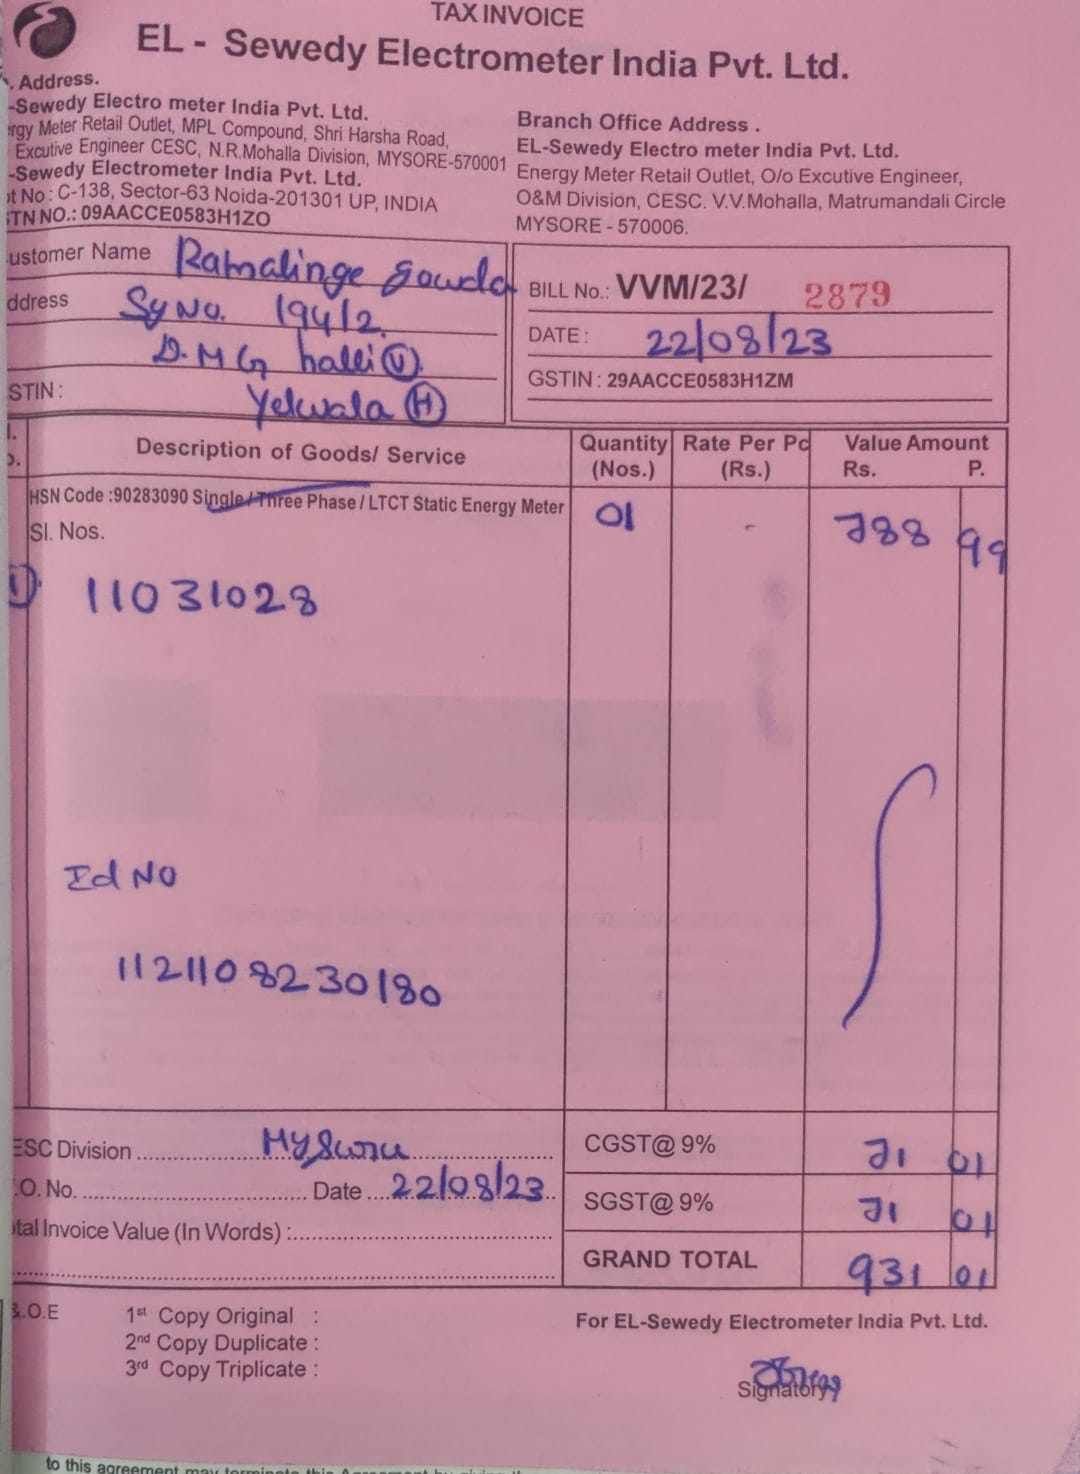 TAX INVOICE
EL - Sewedy Electrometer India Pvt. Ltd.
. Address.
-Sewedy Electro meter India Pvt. Ltd.
ergy Meter Retail Outlet, MPL Compound, Shri Harsha Road,
Excutive Engineer CESC, N.R.Mohalla Division, MYSORE-570001
-Sewedy Electrometer India Pvt. Ltd.
ot No : C-138, Sector-63 Noida-201301 UP, INDIA
STN NO.: 09AACCE0583H1ZO
Branch Office Address .
EL-Sewedy Electro meter India Pvt. Ltd.
Energy Meter Retail Outlet, O/o Excutive Engineer,
O&M Division, CESC. V.V.Mohalla, Matrumandali Circle
MYSORE - 570006.
ustomer Name Ramalinge Gowda
ddress Sy No. 194/2
D.M G halli (V)
STIN : Yelwala (H)
BILL No.: VVM/23/ 2879
DATE : 22/08/23
GSTIN : 29AACCE0583H1ZM
Description of Goods/ Service Quantity (Nos.) Rate Per Pc (Rs.) Value Amount Rs. P.
HSN Code :90283090 Single / Three Phase / LTCT Static Energy Meter 01 - 788 99
Sl. Nos.
1) 11031028
Id No
1121108230180
ESC Division Mysuru
.O. No. Date 22/08/23
tal Invoice Value (In Words) :
CGST@ 9% 71 01
SGST@ 9% 71 01
GRAND TOTAL 931 01
&.O.E
1st Copy Original :
2nd Copy Duplicate :
3rd Copy Triplicate :
For EL-Sewedy Electrometer India Pvt. Ltd.
Signatory
to this agreement may terminate this Agreement by giving